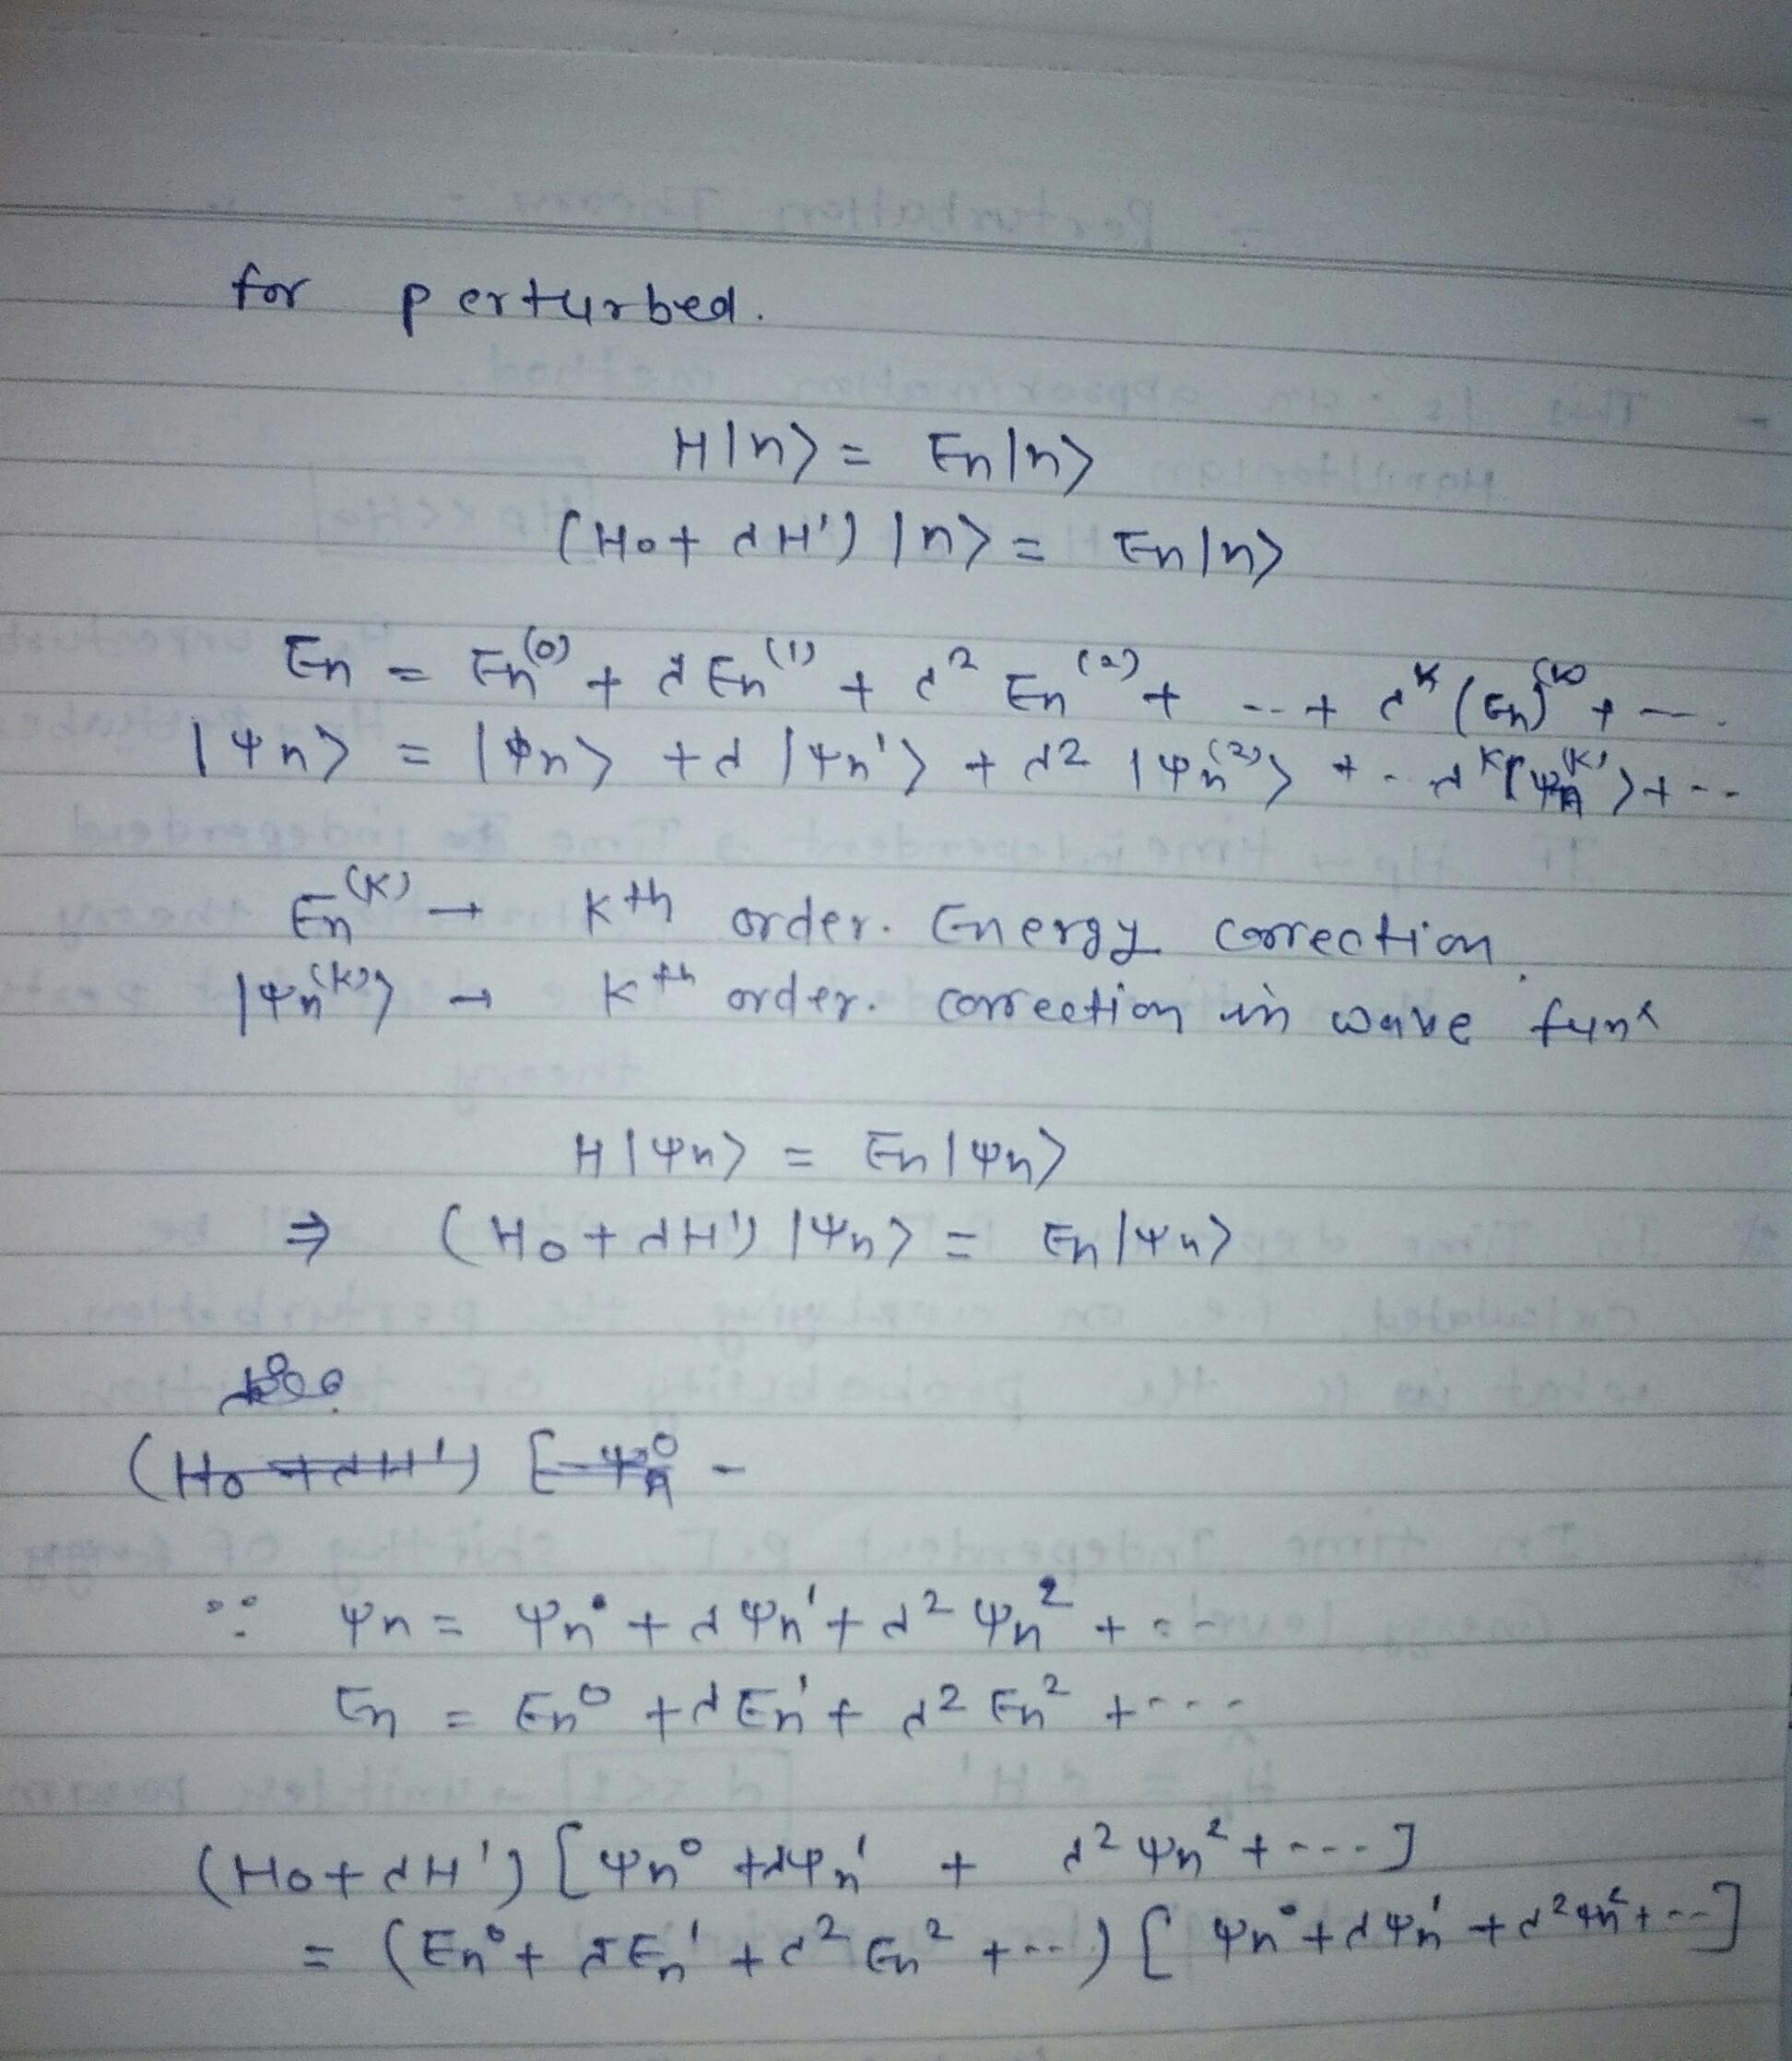 for perturbed.
H|n> = En|n>
(H0 + λH') |n> = En|n>
En = En^(0) + λ En^(1) + λ^2 En^(2) + -- + λ^k (En)^(k) + --
|ψn> = |φn> + λ |ψn'> + λ^2 |ψn^(2)> + - λ^k |ψn^(k)> + --
En^(k) → kth order. Energy correction
|ψn^(k)> → kth order. correction in wave funx
H|ψn> = En|ψn>
⇒ (H0 + λH') |ψn> = En|ψn>
(H0 + λH') [ ψn^0 -
∵ ψn = ψn^0 + λψn' + λ^2 ψn^2 + --
En = En^0 + λEn' + λ^2 En^2 + ---
(H0 + λH') [ψn^0 + λψn' + λ^2 ψn^2 + ---]
= (En^0 + λEn' + λ^2 En^2 + --) [ψn^0 + λψn' + λ^2 ψn^2 + --]